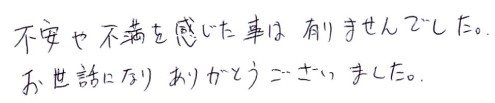 不安や不満を感じた事は有りませんでした。
お世話になりありがとうございました。